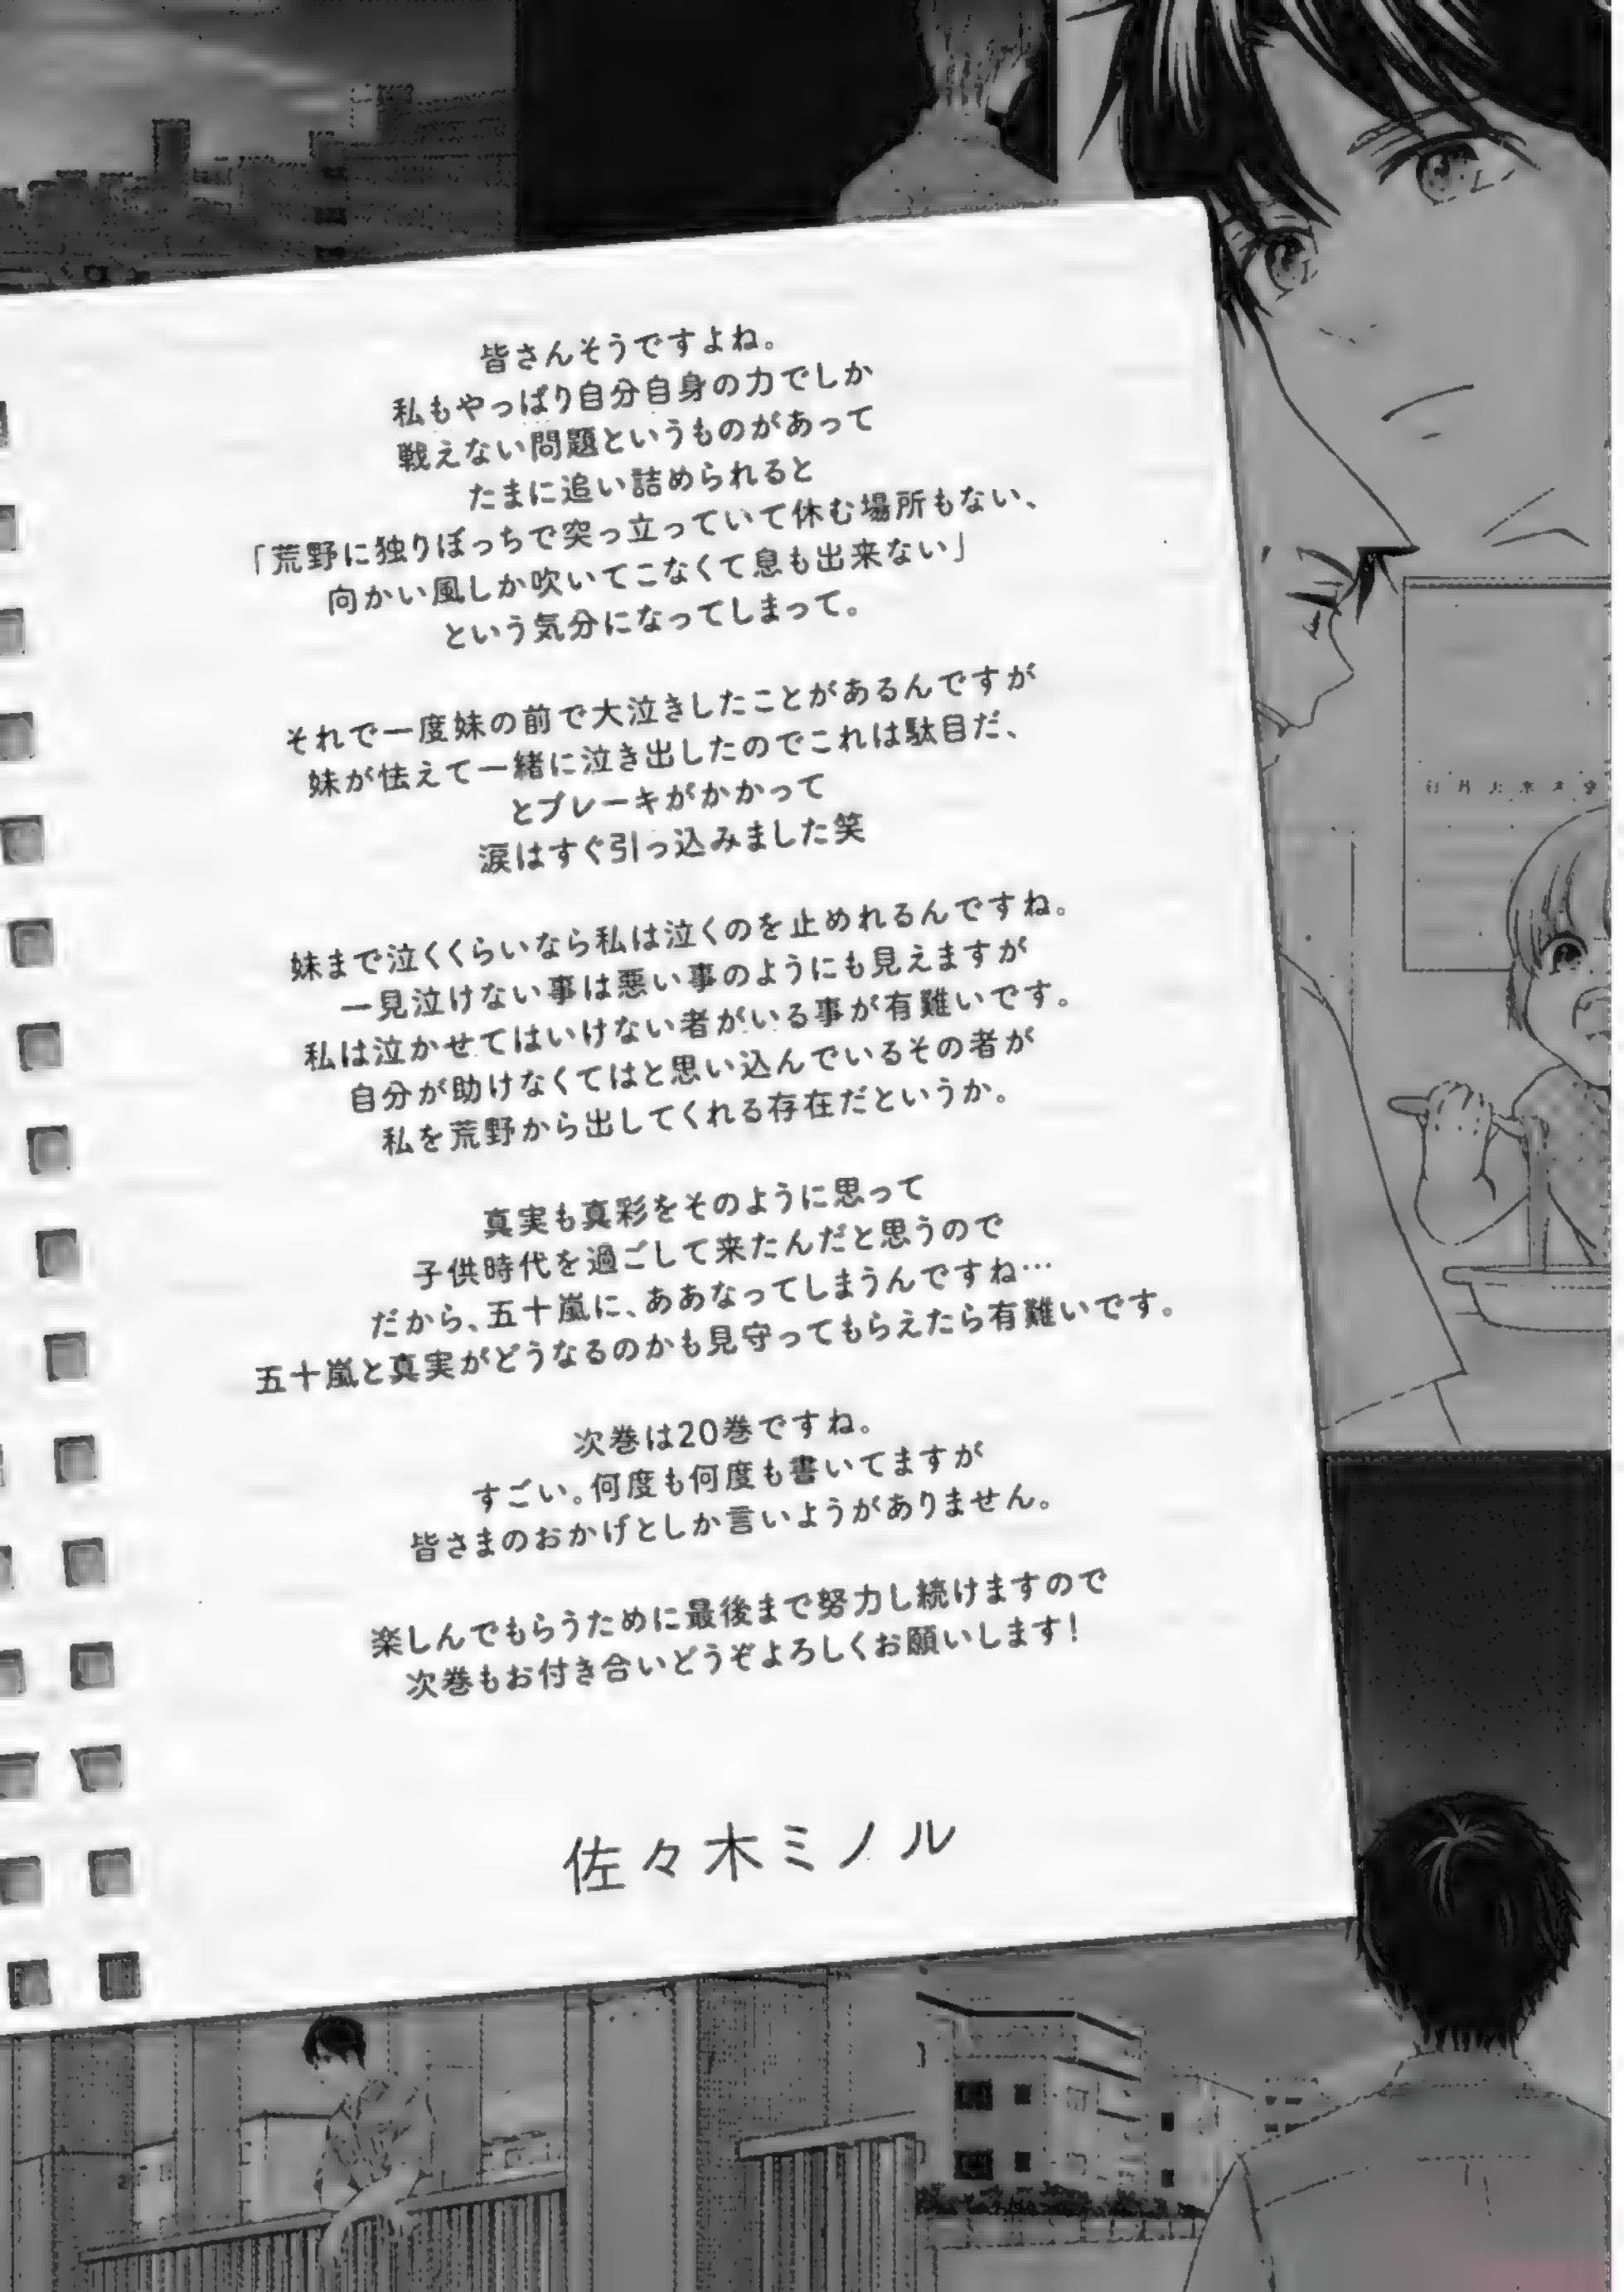 皆さんそうですよね。
私もやっぱり自分自身の力でしか
戦えない問題というものがあって
たまに追い詰められると
「荒野に独りぼっちで突っ立っていて休む場所もない、
向かい風しか吹いてこなくて息も出来ない」
という気分になってしまって。
それで一度妹の前で大泣きしたことがあるんですが
妹が怯えて一緒に泣き出したのでこれは駄目だ、
とブレーキがかかって
涙はすぐ引っ込みました笑
妹まで泣くくらいなら私は泣くのを止めれるんですね。
一見泣けない事は悪い事のようにも見えますが
私は泣かせてはいけない者がいる事が有難いです。
自分が助けなくてはと思い込んでいるその者が
私を荒野から出してくれる存在だというか。
真実も真彩をそのように思って
子供時代を過ごして来たんだと思うので
だから、五十嵐に、ああなってしまうんですね…
五十嵐と真実がどうなるのかも見守ってもらえたら有難いです。
次巻は20巻ですね。
すごい。何度も何度も書いてますが
皆さまのおかげとしか言いようがありません。
楽しんでもらうために最後まで努力し続けますので
次巻もお付き合いどうぞよろしくお願いします!
佐々木ミノル